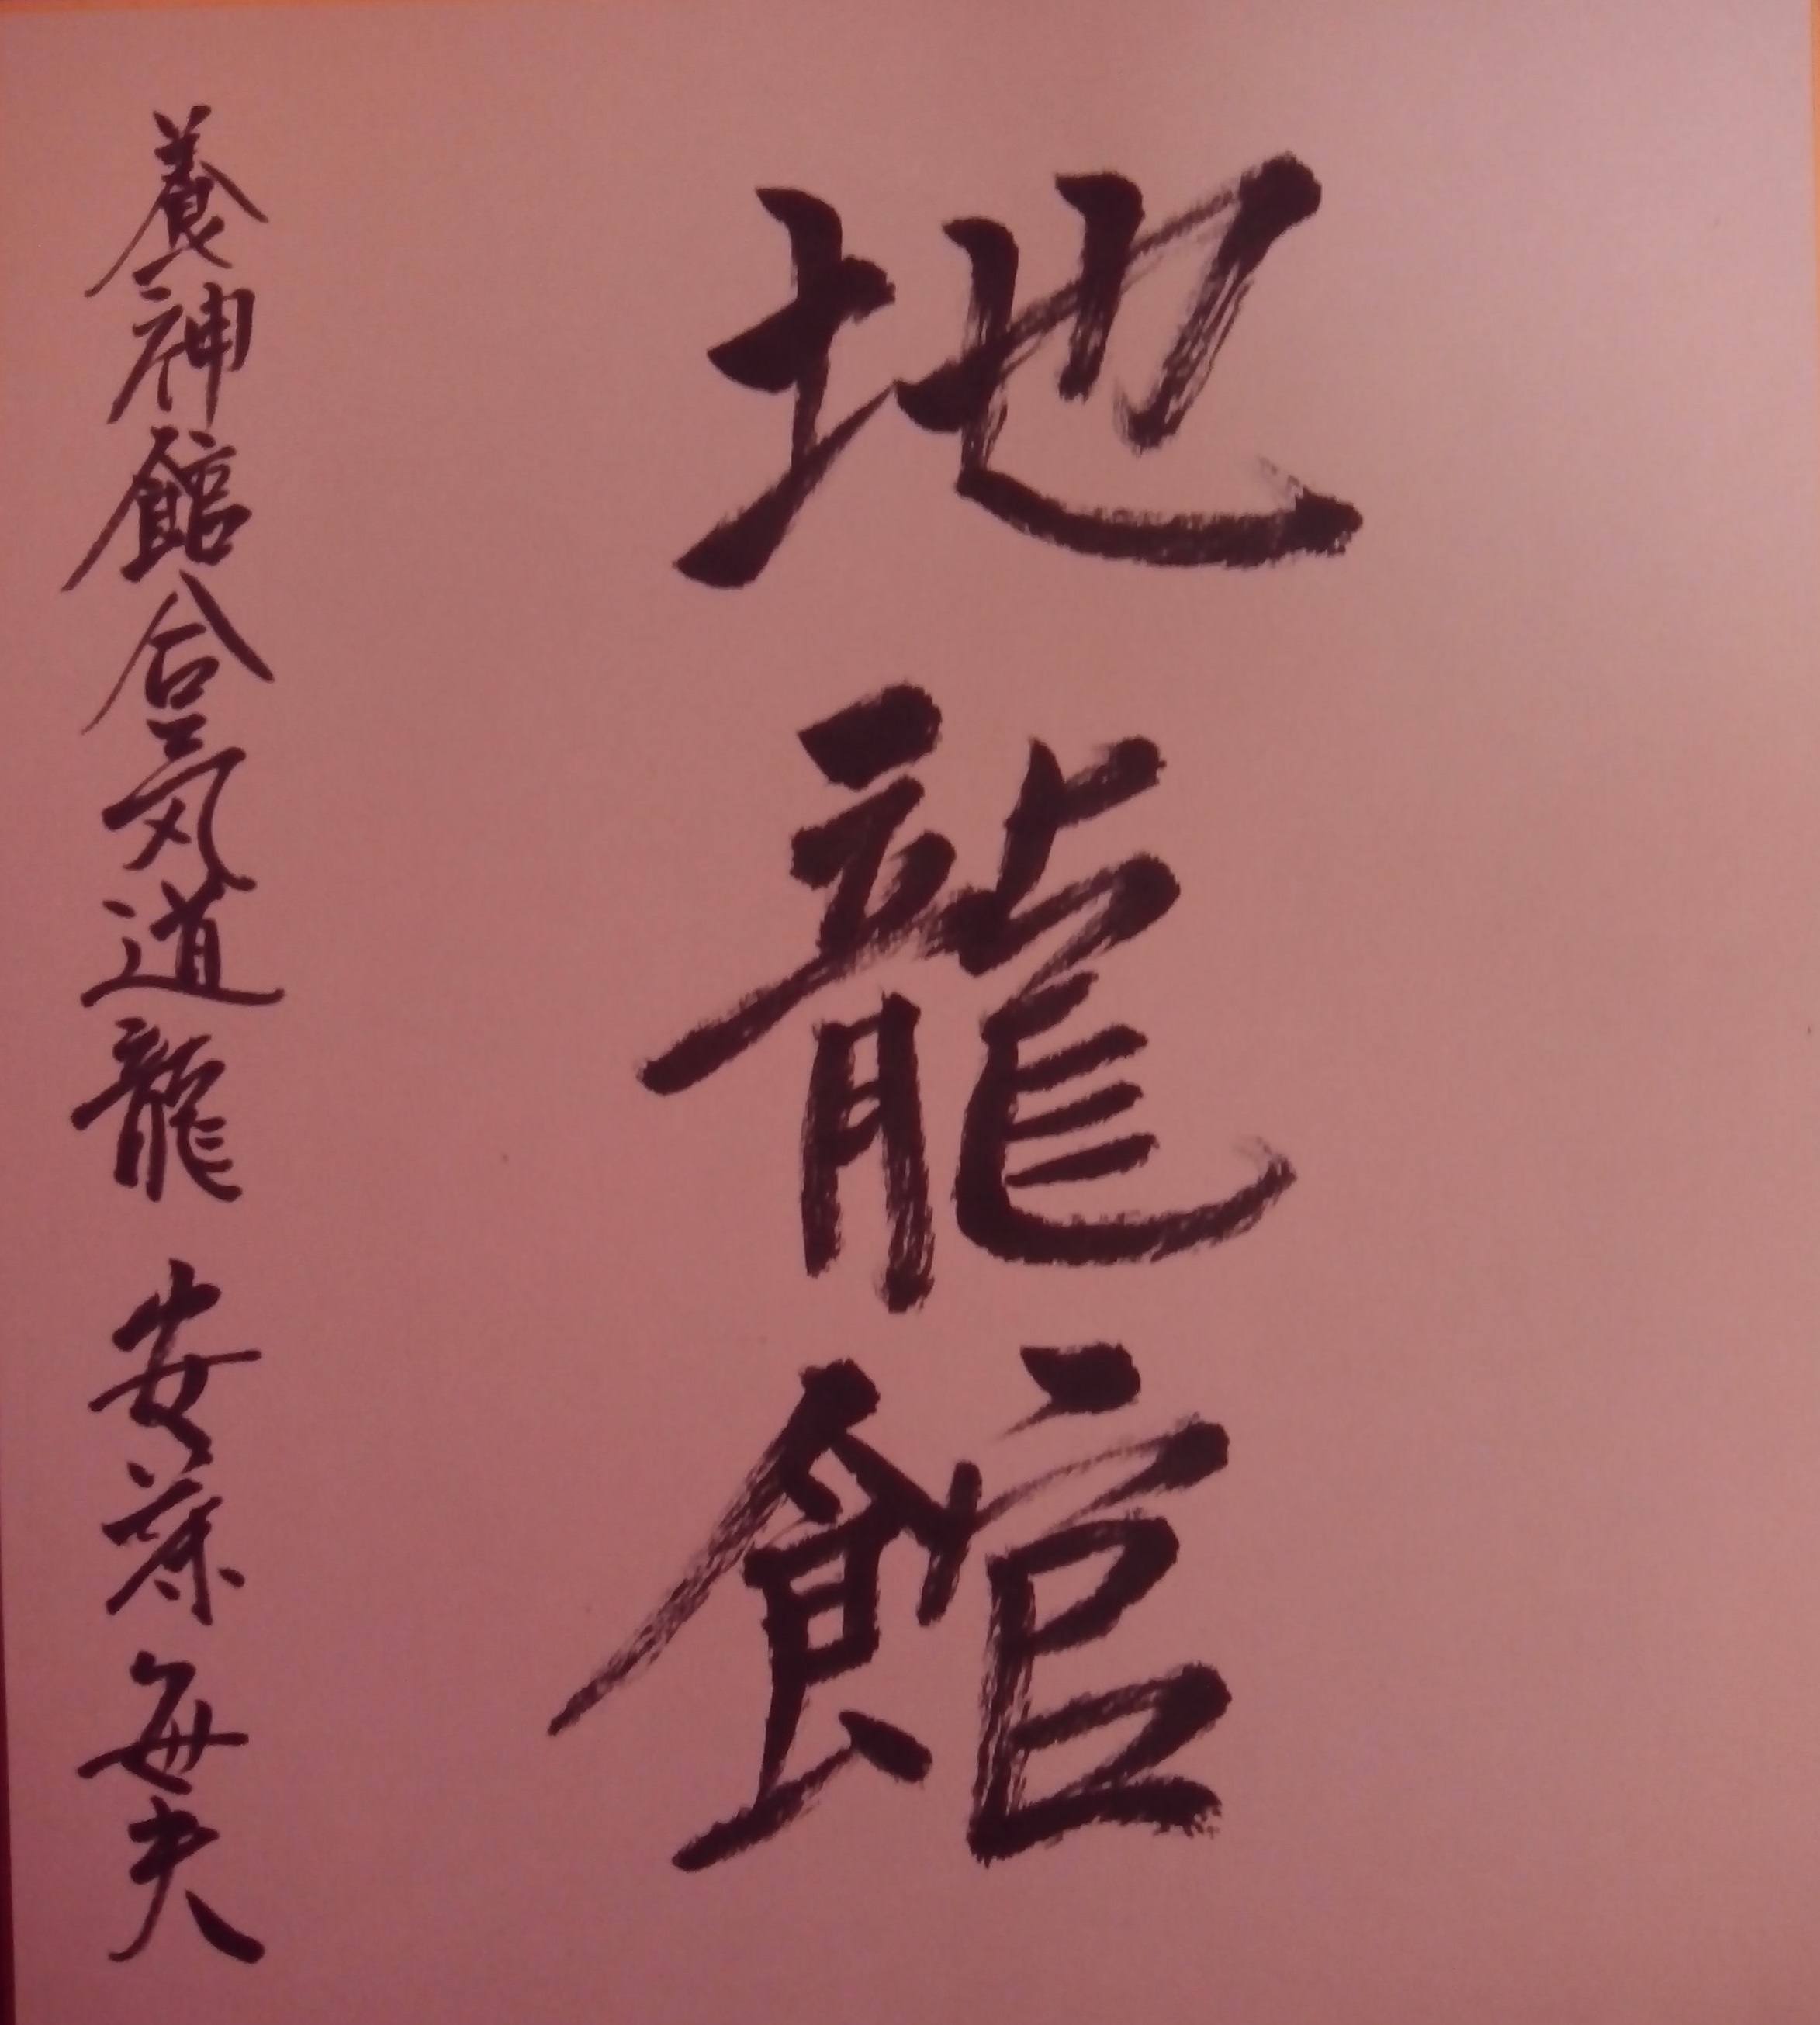 地龍館
養神館合気道龍 安藤毎夫